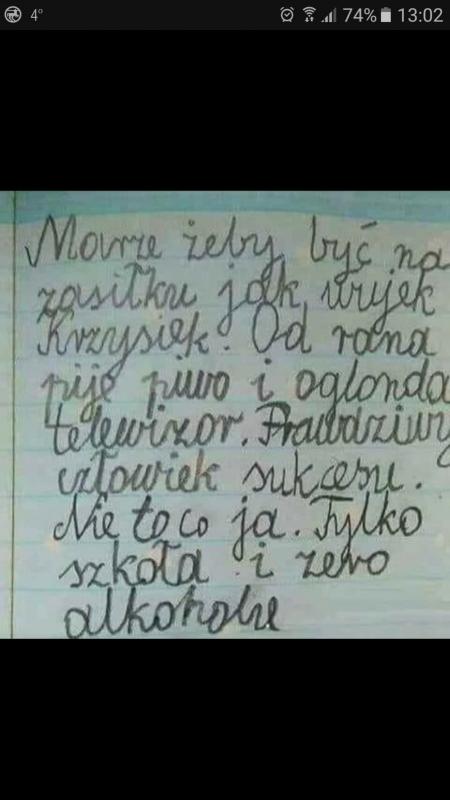 4°
74% 13:02
Marze żeby być na
zasiłku jak wujek
Krzysiek. Od rana
pije piwo i oglonda
telewizor. Prawdziwy
człowiek sukcesu.
Nie to co ja. Tylko
szkoła i zero
alkoholu